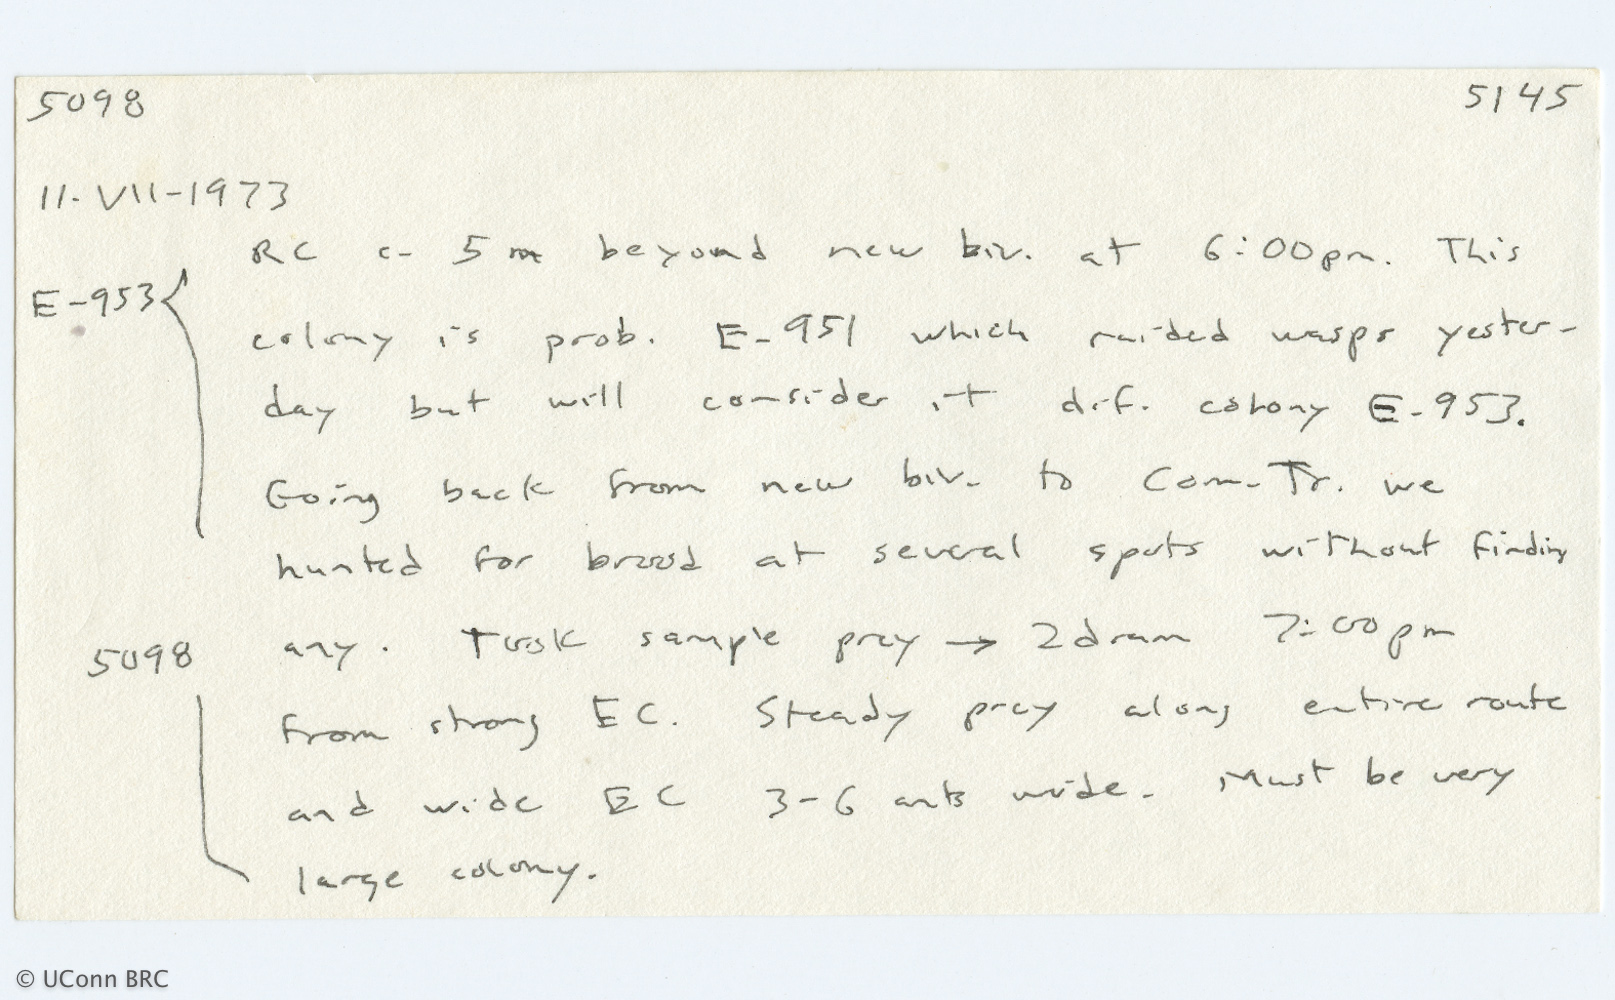 5098 5145
11-VII-1973
RC c- 5 m beyond new biv. at 6:00pm. This
E-953
colony is prob. E-951 which raided wasps yester-
day but will consider it dif. colony E-953.
Going back from new biv. to Com-Tr. we
hunted for brood at several spots without finding
any. Took sample prey → 2dram 7:00pm
5098
from strong EC. Steady prey along entire route
and wide EC 3-6 ants wide. Must be very
large colony.
© UConn BRC